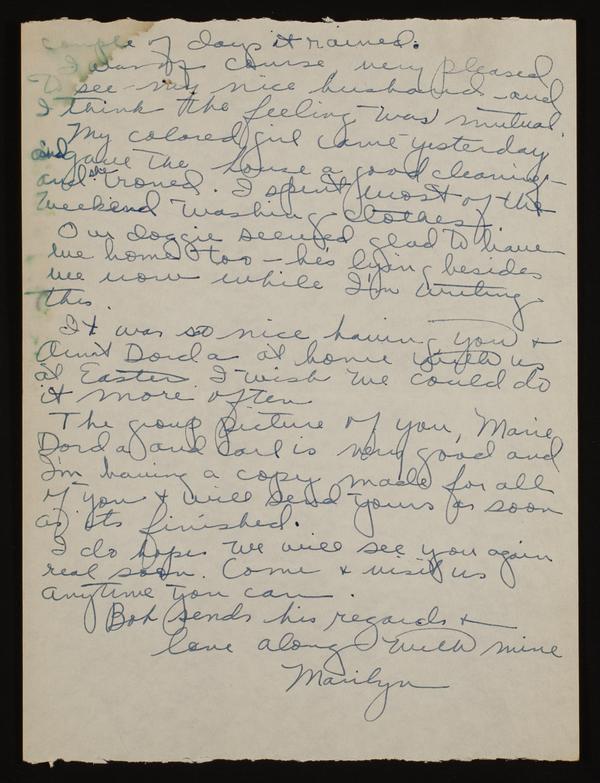 couple of days it rained.
I was of course very pleased
to see my nice husband - and
I think the feeling was mutual.
My colored girl came yesterday
and gave the house a good cleaning -
and she ironed. I spent most of the
weekend washing clothes.
Our doggie seemed glad to have
me home too - he's lying besides
me now while I'm writing
this.
It was so nice having you &
Aunt Dorda at home with us
at Easter I wish we could do
it more often
The group picture of you, Marie
Dorda and Carl is very good and
I'm having a copy made for all
of you & will send yours as soon
as its finished.
I do hope we will see you again
real soon. Come & visit us
anytime you can.
Bob sends his regards &
love along with mine
Marilyn